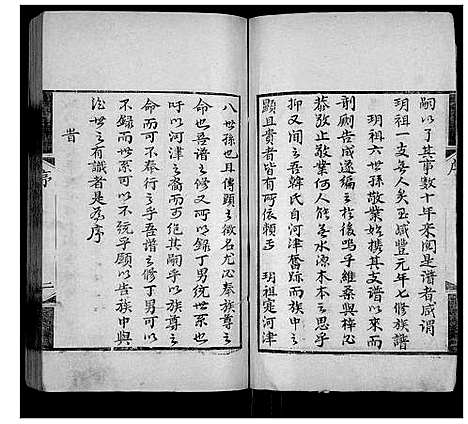 嗣以了其事數十年來閱是譜者咸謂
玥祖一支無人矣至咸豐元年七修族譜
玥祖六世孫敬業始携其支譜以來而
剞劂告成遂編之於後嗚乎維桑與梓必
恭敬止敬業何人能無水源木本之思乎
抑又聞之吾韓氏自河津奮跡而族之
顯且貴者皆有所依賴焉 玥祖寔河津
八世孫也且傳顯之徵名尤必奉族尊之
命也吾譜之修又所以錄丁男統世系也
吁以河津之裔而可絕其嗣乎以族尊之
命而可不奉行之乎吾譜之修丁男可以
不錄而世系可以不統乎願以告族中與
世之有識者是為序
昔
序